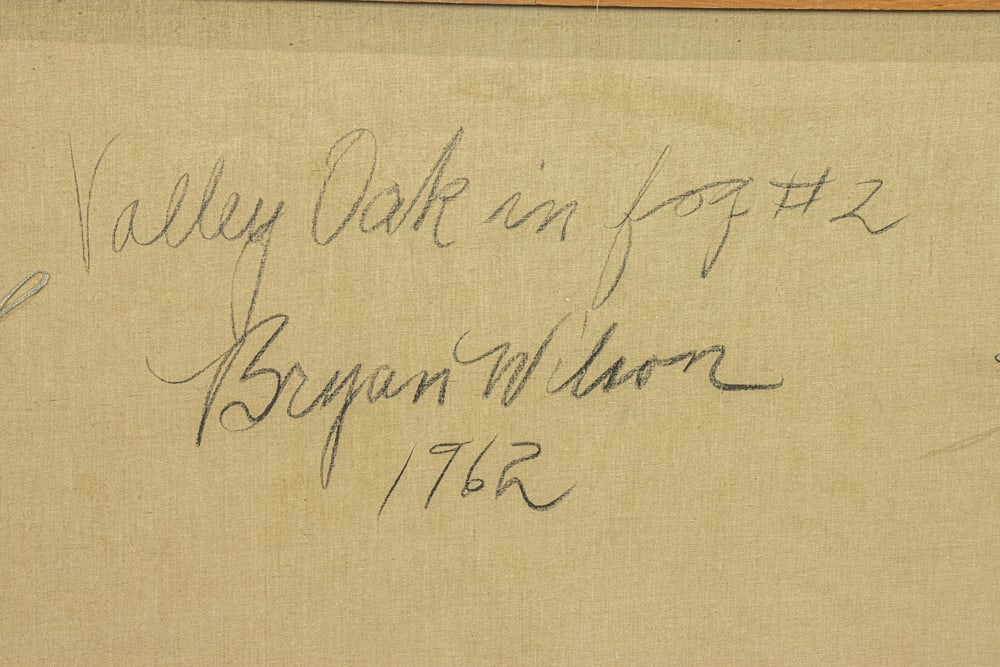 Valley Oak in fog #2
Bryan Wilson
1962